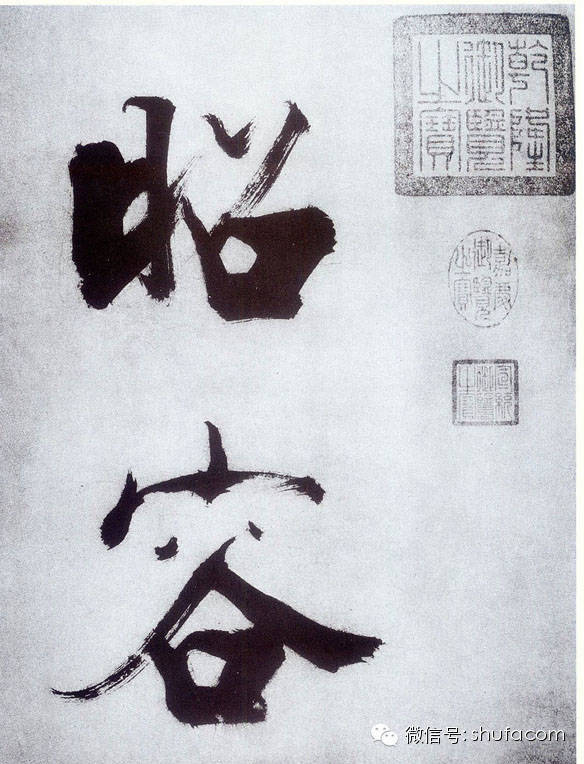 昭
容
乾隆
御覽
之寶
嘉慶
御覽
之寶
宣統
御覽
之寶
微信号: shufacom